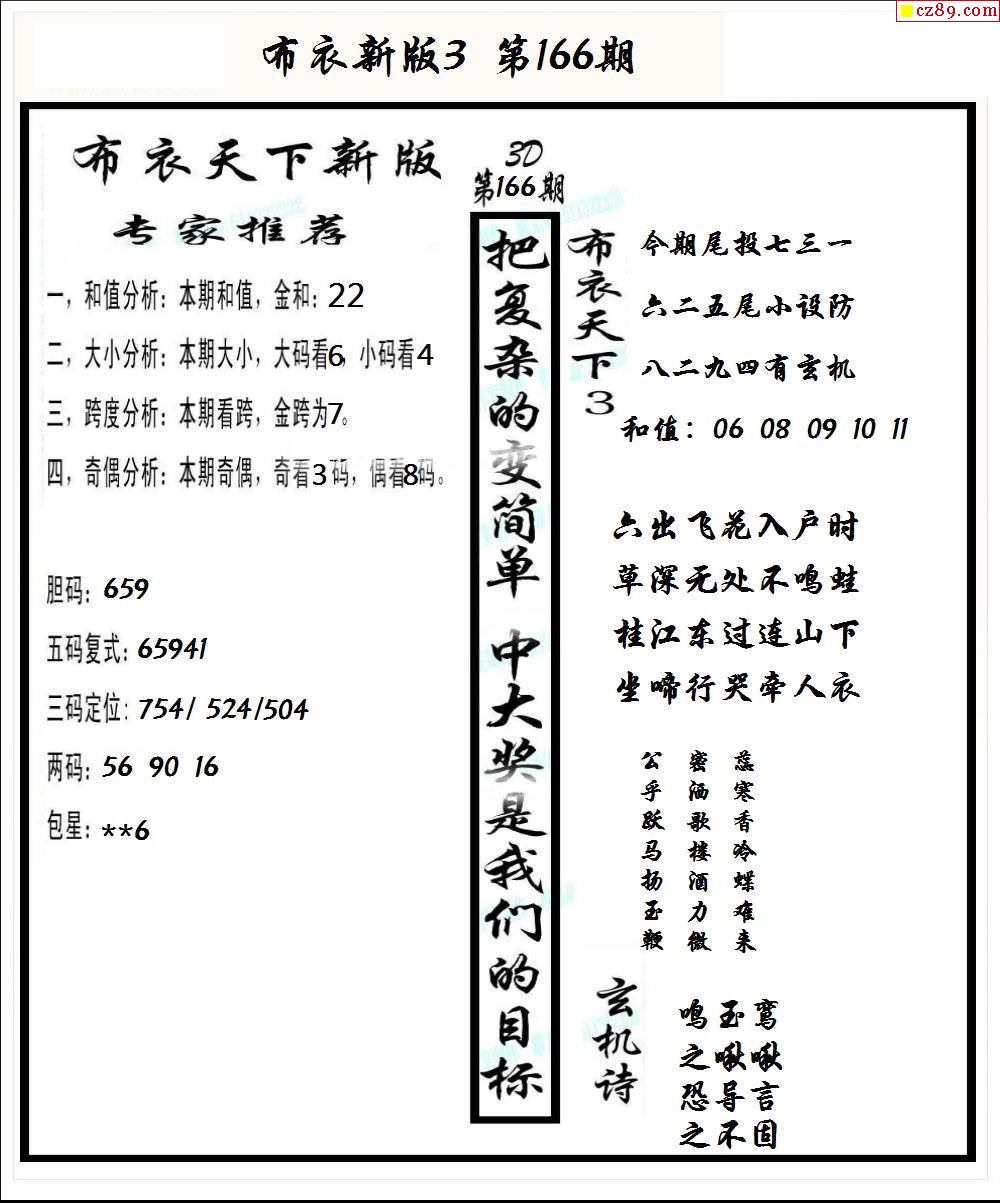 cz89.com
布衣新版3 第166期
布衣天下新版
专家推荐
一，和值分析：本期和值，金和：22
二，大小分析：本期大小，大码看6，小码看4
三，跨度分析：本期看跨，金跨为7。
四，奇偶分析：本期奇偶，奇看3码，偶看8码。
胆码：659
五码复式：65941
三码定位：754/ 524/504
两码：56 90 16
包星：**6
3D
第166期
把复杂的变简单 中大奖是我们的目标
布衣天下3
今期尾投七三一
六二五尾小设防
八二九四有玄机
和值：06 08 09 10 11
六出飞花入户时
草深无处不鸣蛙
桂江东过连山下
坐啼行哭牵人衣
蕊寒香冷蝶难来
密洒歌楼酒力微
公乎跃马扬玉鞭
玄机诗
鸣玉鸾
之啾啾
恐导言
之不固